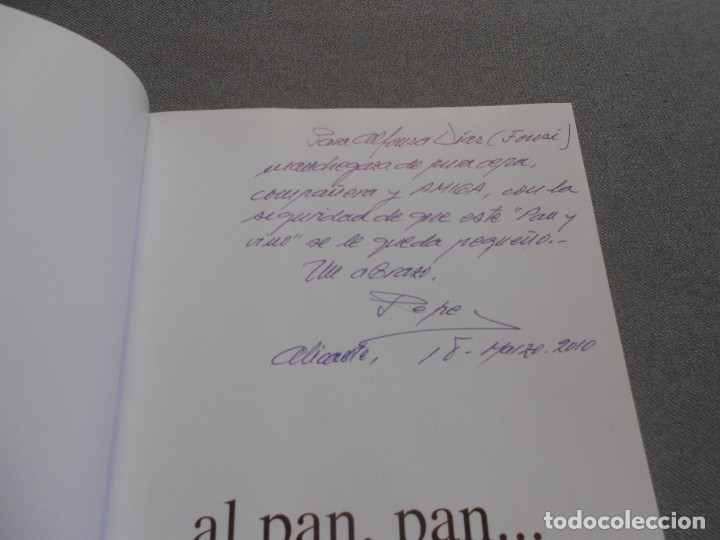 Para Alfonsa Díaz (Fonsi)
manchega de pura cepa,
compañera y AMIGA, con la
seguridad de que este "Pan y
vino" se le queda pequeño.-
Un abrazo.
Pepe
Alicante, 18-Marzo-2010
al pan, pan...
todocoleccion
todocoleccion.net